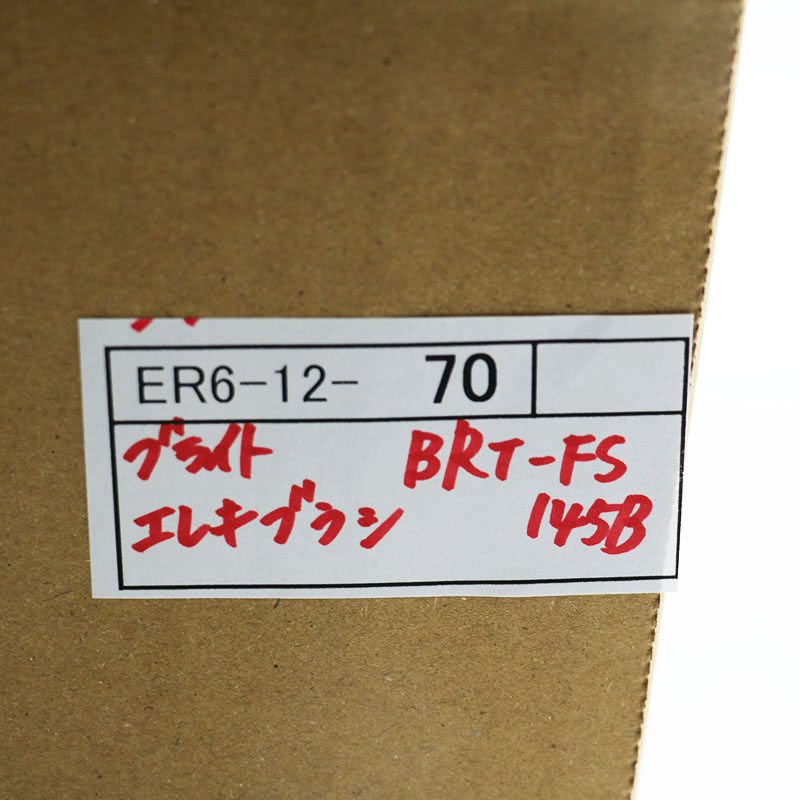 ER6-12- 70
ブライト BRT-FS
エレキブラシ 145B